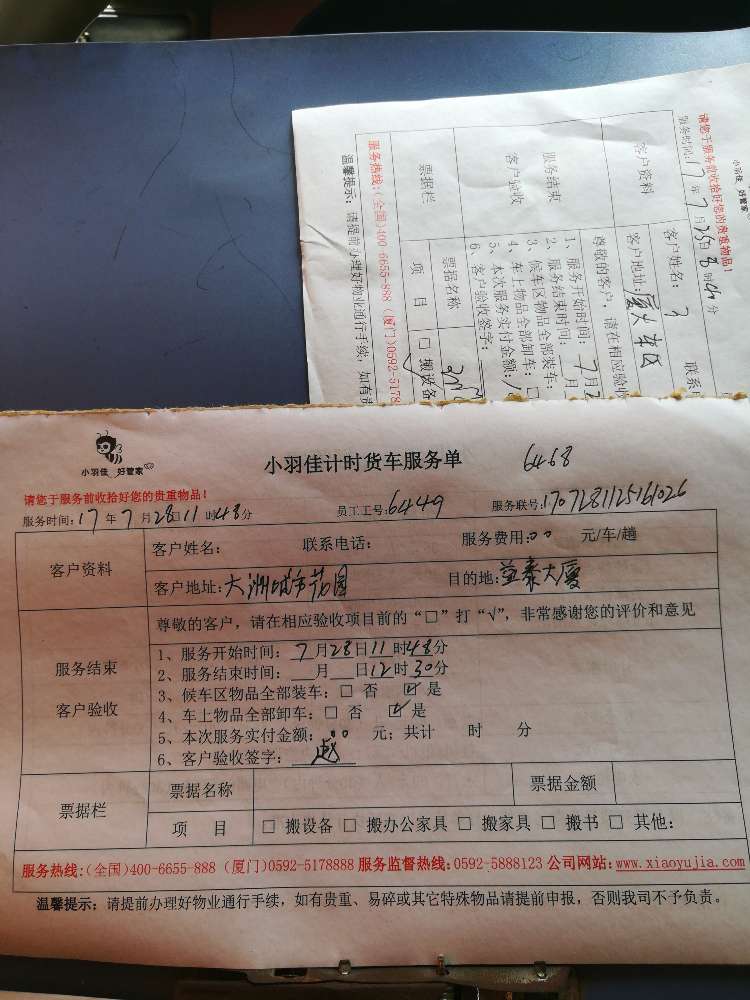 小羽佳 好管家
小羽佳计时货车服务单
6468
请您于服务前收拾好您的贵重物品!
服务时间:17年7月28日11时48分 员工工号:6449 服务联号:1707281125161026
客户资料
客户姓名: 联系电话: 服务费用:00 元/车/趟
客户地址:大洲城市花园 目的地:益泰大厦
服务结束
客户验收
尊敬的客户，请在相应验收项目前的“□”打“√”，非常感谢您的评价和意见
1、服务开始时间:7月28日11时48分
2、服务结束时间: 月 日12时30分
3、候车区物品全部装车:□ 否 ☑ 是
4、车上物品全部卸车:□ 否 ☑ 是
5、本次服务实付金额:00 元;共计 时 分
6、客户验收签字:赵
票据栏
票据名称 票据金额
项 目 □ 搬设备 □ 搬办公家具 □ 搬家具 □ 搬书 □ 其他:
服务热线:(全国)400-6655-888 (厦门)0592-5178888 服务监督热线:0592-5888123 公司网站:www.xiaoyujia.com
温馨提示:请提前办理好物业通行手续，如有贵重、易碎或其它特殊物品请提前申报，否则我司不予负责。
小羽佳 好管家
请您于服务前收拾好您的贵重物品!
服务时间:17年7月25日8时40分
客户资料
客户姓名:
联系
客户地址:厦大
服务结束
客户验收
尊敬的客户，请在相应验收
1、服务开始时间:7月2
2、服务结束时间: 月
3、候车区物品全部装车:□
4、车上物品全部卸车:□
5、本次服务实付金额:
6、客户验收签字:
票据栏
票据名称
项 目 □ 搬设备
服务热线:(全国)400-6655-888 (厦门)0592-5178
温馨提示:请提前办理好物业通行手续，如有贵